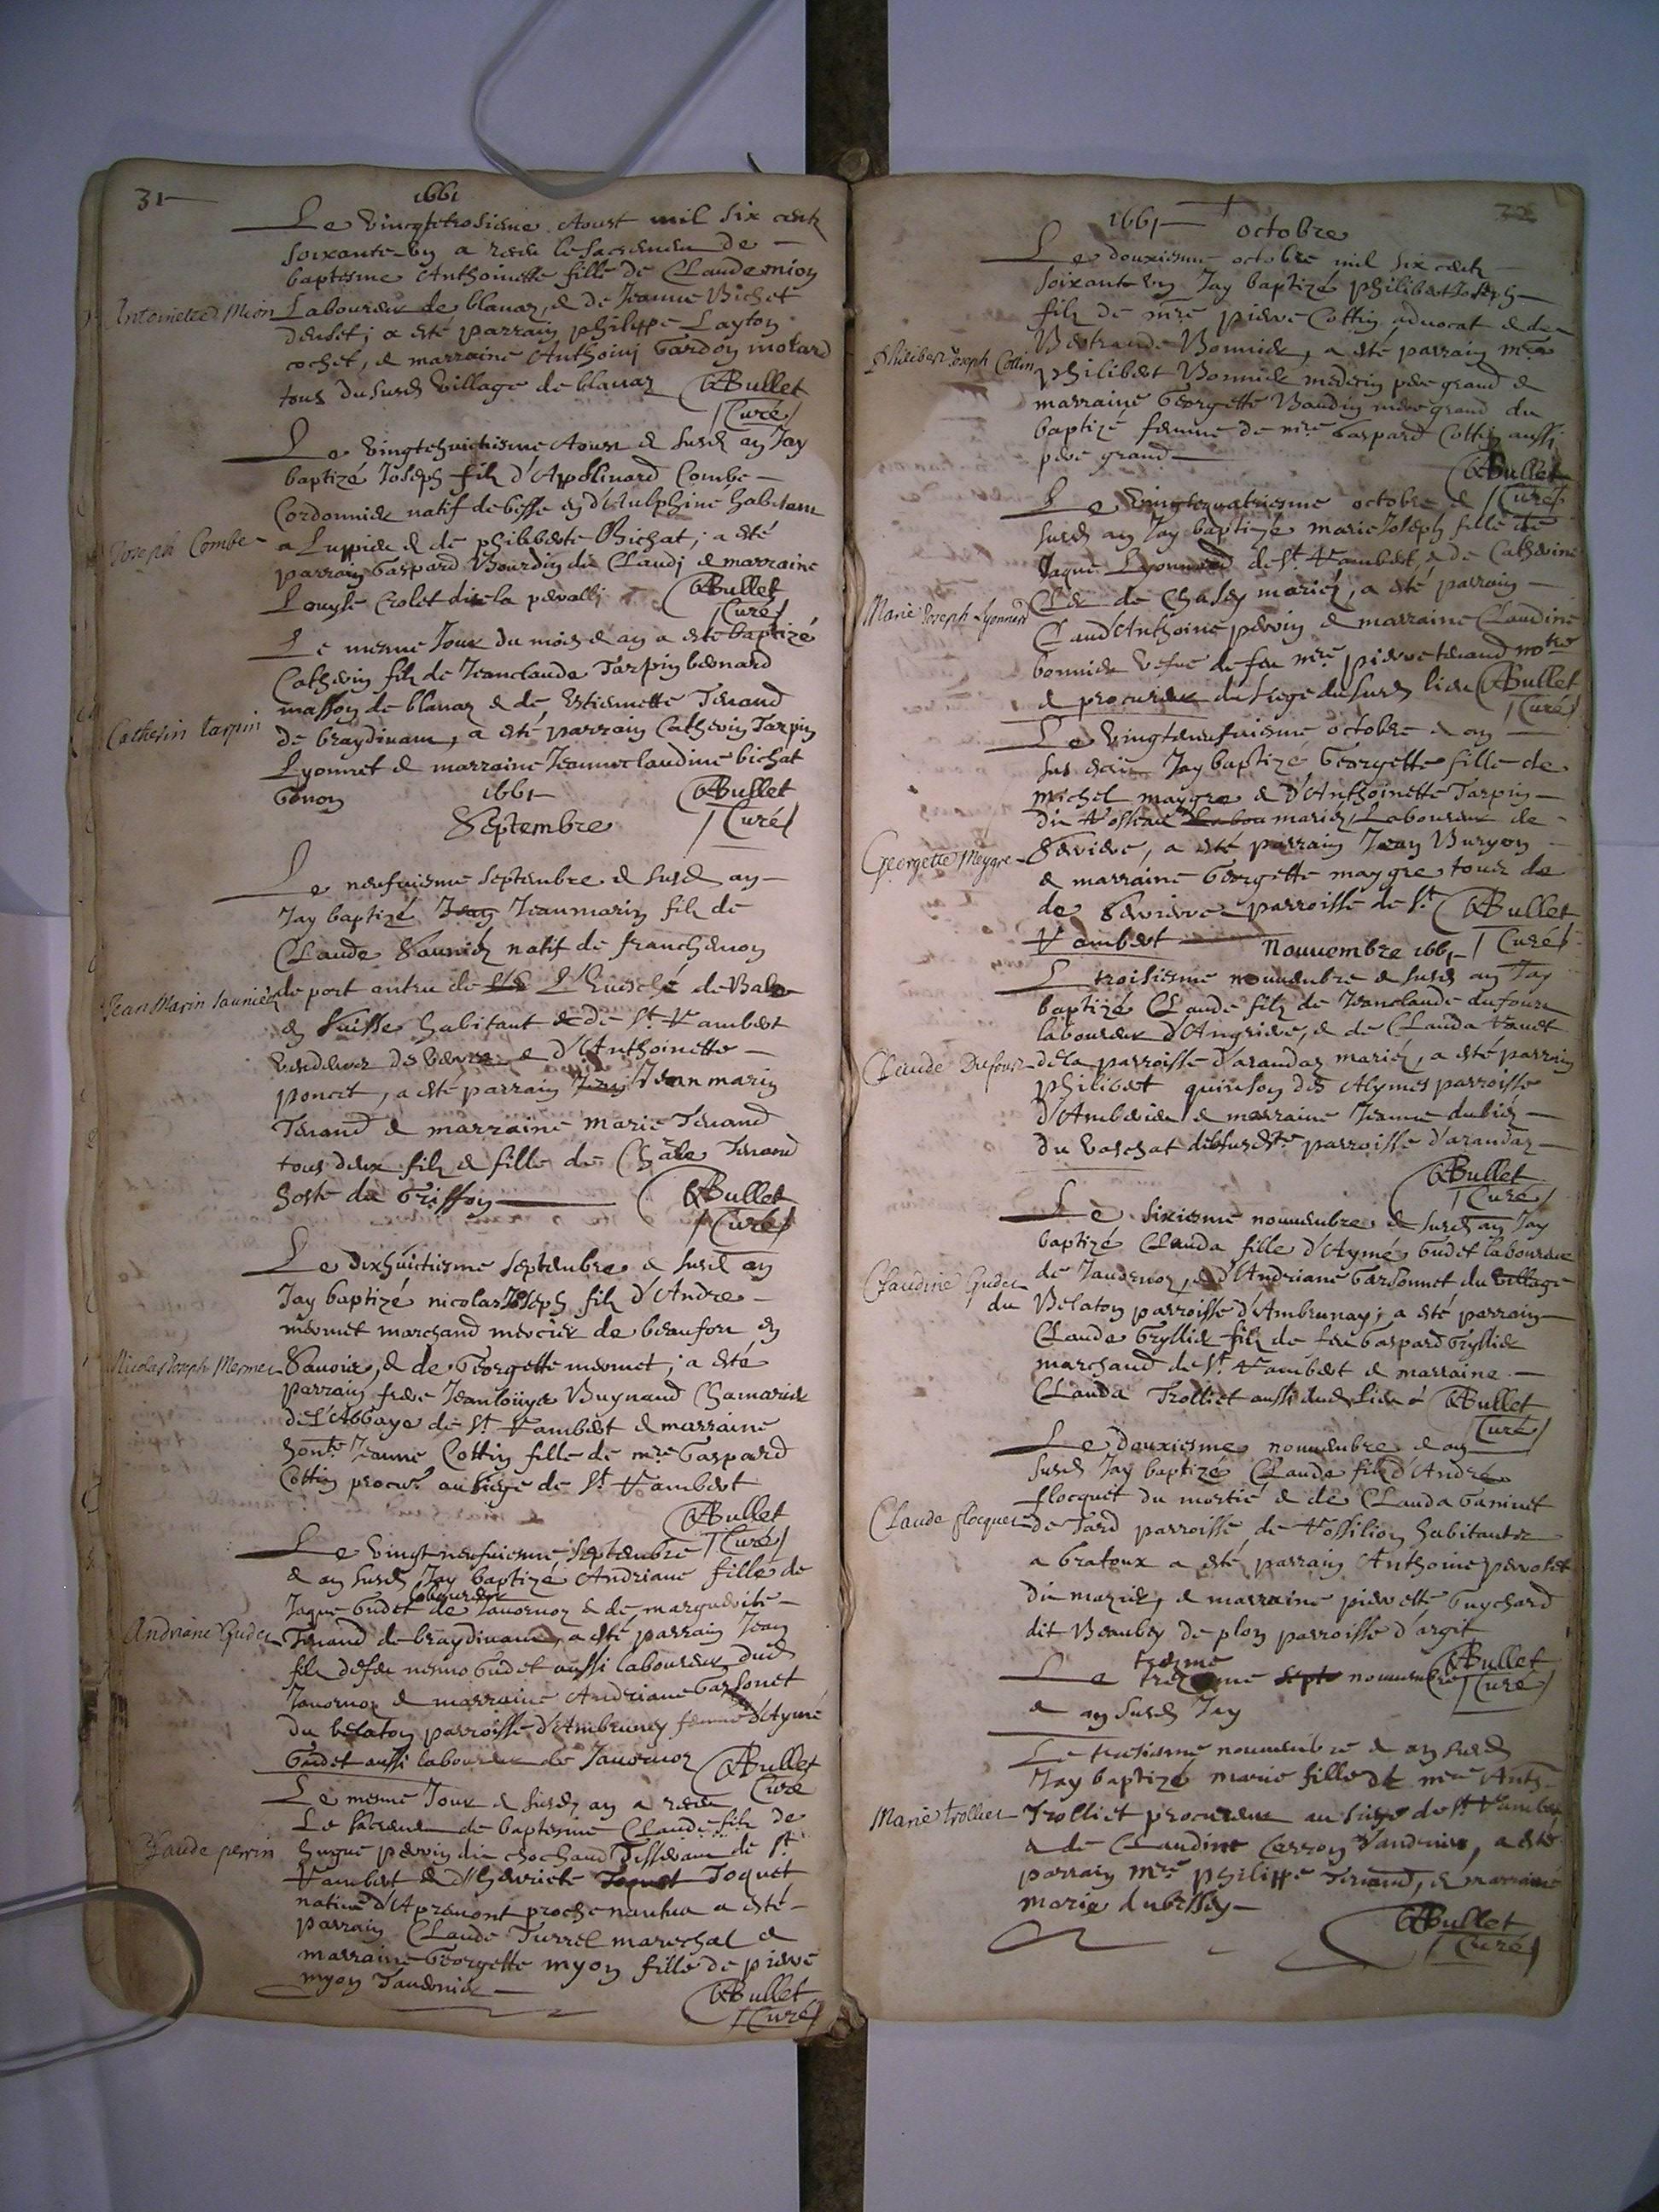 31
1661
Le vingttroisieme Aoust mil six centz
soixante un a receu le sacrement de
baptesme Anthoinette fille de Claude mion
Antoinette Mion
Laboureur de blanaz, et de Jeanne Bichet
a esté parrain philippe Layton
cochet, et marraine Anthoini Gardon
tous du susd village de blanaz
GBullet
Curé
Le vingthuictiesme Aoust et susd an Jay
baptizé Joseph filz d'Apolinard Combe
Joseph Combe
Cordonnier natif de besse en d'aulphine habitant
a et de philiberte Bichat, a esté
parrain Gaspard Bourdin dit Claudj et marraine
Louyse Crolet dit la
GBullet
Curé
Le mesme Jour du mois et an a esté baptizé
Catherin filz de Jeanclaude Tarpin bernard
Catherin tarpin
masson de blanaz et de Estiennette Tenand
de braydinam, a esté parrain Catherin Tarpin
Lyonnet et marraine Jeanneclaudine bichat
Genon
1661
GBullet
Septembre
Curé
Le neufuiesme Septembre et susd an
Jay baptizé Jean Jeanmarin filz de
Claude Saunier natif de franchemon
Jean Marin Saunier
de port antru de L'Euesché de Bale
en Suisse habitant de St Rambert
de verre et d'Anthoinette
poncet, a esté parrain Jean Jean marin
Tenand et marraine marie Tenand
tous deux filz et fille de Tenand
hoste du Griffon
GBullet
Curé
Le dixhuictiesme Septembre et susd an
Jay baptizé nicolas Joseph filz d'Andre
mermet marchand mercier de beaufort en
Nicolas Joseph Mermet
Sauoie, et de Georgette mermet, a esté
parrain frere Jeanlouys Buynand Chamarier
de l'Abbaye de St Rambert et marraine
honte Jeanne Cottin fille de mre Gaspard
Cottin procur au siege de St Rambert
GBullet
Curé
Le vingtneufuiesme Septembre
et an susd Jay baptizé Andriane fille de
laboureur
Jaque Gudet de Jauornoz et de marguerite
Andriane Gudet
Tenand de braydinam, a esté parrain Jean
filz de feu nemo Gudet aussi laboureur dud
Jauornoz et marraine Andriane Garsonet
du belaton parroisse d'Ambrunay femme d'Aymé
Gudet aussi laboureur de Jauornoz
GBullet
Curé
Le mesme Jour et susd an a receu
Le sacrement de baptesme Claude filz de
Claude perrin
hugue perrin dit chochand Tisserant de St
Rambert et d'henriete Toquet Toquet
natiue d'Apremont proche nantua a esté
parrain Claude Turrel mareschal et
marraine Georgette myon fille de pierre
myon Tauernier
GBullet
Curé
32
1661 octobre
Le douxiesme octobre mil six centz
soixant un Jay baptizé philibert Joseph
filz de mre pierre Cottin aduocat et de
Philibert Joseph Cottin
Bertrande Bonnier, a esté parrain mre
philibert Bonnier medecin pere grand et
marraine Georgette Baudin mere grand du
baptizé femme de mre Gaspard Cottin aussi
pere grand
GBullet
Curé
Le vingtquatriesme octobre et
susd an Jay baptizé marie Joseph fille de
Jaque Lyonnard de St Rambert, et de Catherine
Marie Joseph Lyonnard
Cler de Chaley mariez, a esté parrain
Claud'Anthoine perrin et marraine Claudine
bonnier vefue de feu mre pierre tenand notre
et procureur du siege du susd lieu
GBullet
Curé
Le vingtneufuiesme octobre et an
sus escrit Jay baptizé Georgette fille de
michel maygre et d'Anthoinette Tarpin
dit Rosseau mariez, Laboureur de
Georgette Meygre
Serriere, a esté parrain Jean Buryon
et marraine Georgette maygre touz de
de Serriere parroisse de St
GBullet
Rambert
Nouuembre 1661
Curé
Le troisiesme nouuembre et susd an Jay
baptizé Claude filz de Jeanclaude dufour
laboureur d'Angriere, et de Clauda
Claude Dufour
de la parroisse d'arandaz mariez, a esté parrain
philibert quinson des Alymes parroisse
d'Amberieu et marraine Jeanne dubiez
du vaschat parroisse d'arandaz
GBullet
Curé
Le sixiesme nouuembre et susd an Jay
baptizé Clauda fille d'Aymé Gudet laboureur
Claudine Gudet
de Jauornoz, et d'Andriane Garsonnet du village
du Belaton parroisse d'Ambrunay, a esté parrain
Claude Gryllier filz de feu Gaspard Gryllier
marchand de St Rambert et marraine
Clauda Trolliet aussi dud lieu
GBullet
Curé
Le douxiesme nouuembre et an
susd Jay baptizé Claude filz d'André
flocquet du mortié et de Clauda Ganinet
Claude flocquet
de Tard parroisse, de Rossilion habitantz
a bratoux a esté parrain Anthoine perrolet
dit mazier, et marraine pierrette Guychard
dit Beaubey de plon parroisse d'argit
treziesme
GBullet
Le septe nouuembre
Curé
et an susd Jay
Le treziesme nouuembre et an susd
Jay baptizé marie fille de mre Anth
Marie trolliet
Trolliet procureur au siege de St Rambert
et de Claudine Carron Vandenier, a esté
parrain mre philippe Tenand, et marraine
marie dubessey
GBullet
Curé